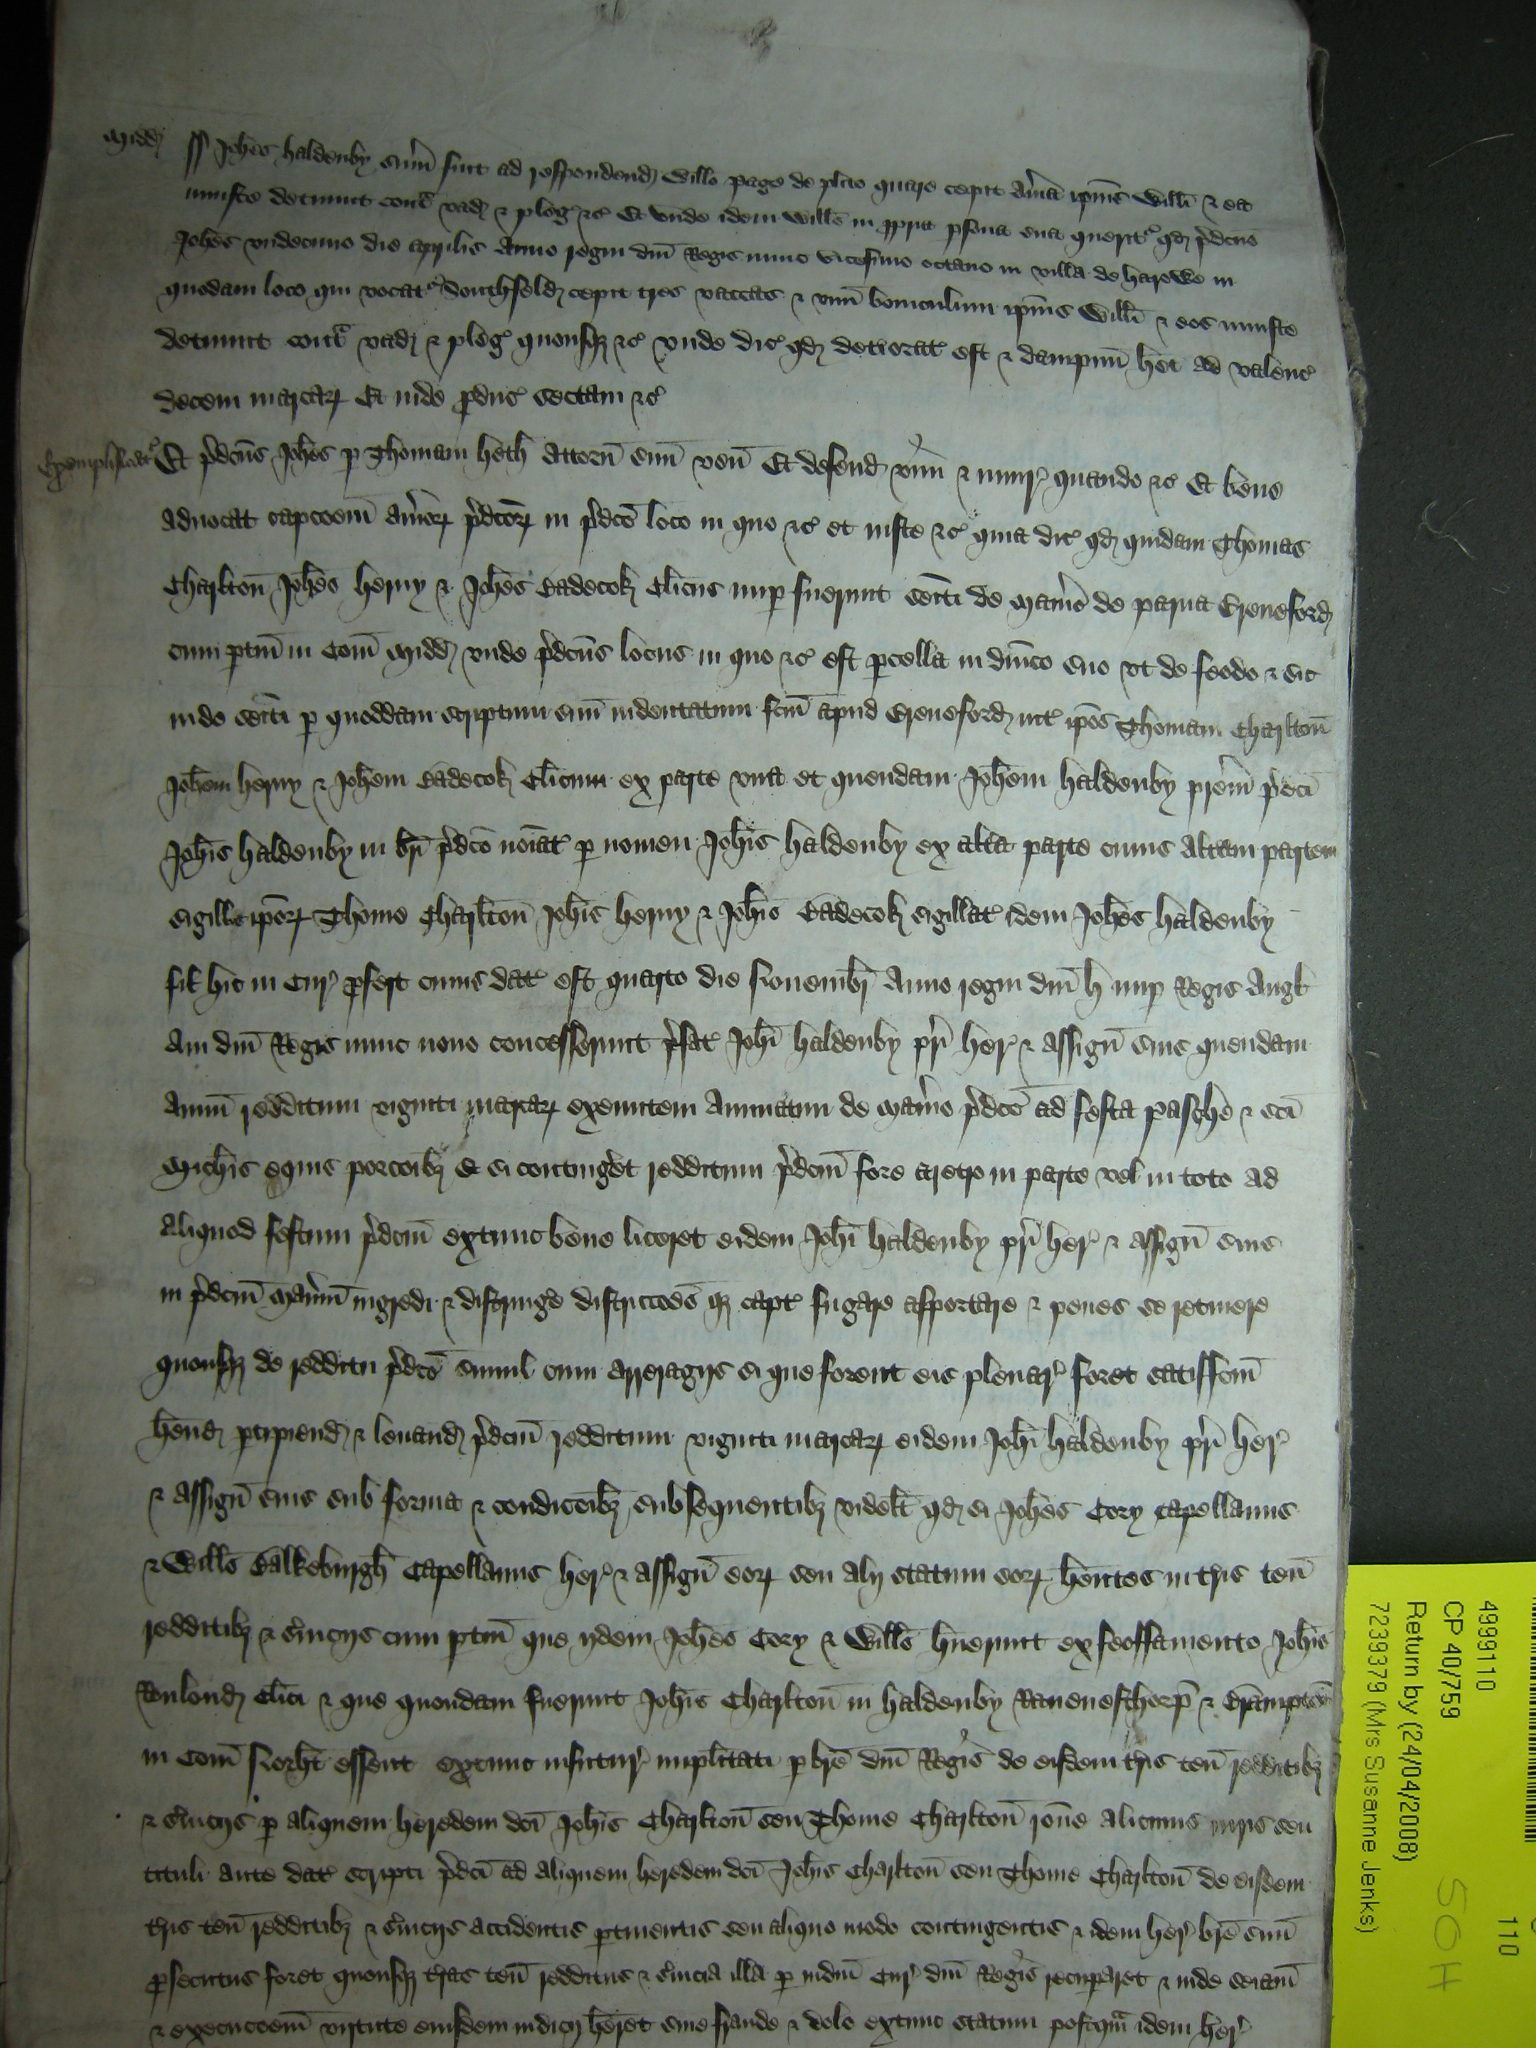 Midd
ss Joh̄es Haldenby sum̄ fuit ad respondend Willo Page de pl̄ito quare cepit Av̄ia ip̄ius Willi & ea
iniuste detinuit cont̄ vad & pleg &c Et unde idem Willūs in p̄pria p̄sona sua querit̄ qd p̄dcūs
Joh̄es undecimo die Aprilis Anno regni dn̄i Regis nunc vicesimo octavo in villa de Harowe in
quodam loco qui vocat̄ Southfeld cepit tres vaccas & unū boviculum ip̄ius Willi & eos iniuste
detinuit cont̄ vad & pleg quousq &c unde dic̄ qd deteriorat̄ est & dampnū h̄et ad valenc̄
decem marcar̄ Et inde p̄duc̄ sectam &c
Exemplificat̄
Et p̄dcūs Joh̄es p Thomam Heth Attorn̄ suū ven̄ Et defend vim & iniur̄ quando &c Et bene
advocat capcōem Av̄ior̄ p̄dcōr̄ in p̄dcō loco in quo &c et iuste &c quia dic̄ qd quidam Thomas
Charlton̄ Joh̄es Henry & Joh̄es Badecok Cl̄icus nup fuerunt sēiti de Man̄io de parva Greneford
cum ptin̄ in Com̄ Midd unde p̄dcūs locus in quo &c est p̄cella in dn̄ico suo ut de feodo & sic
inde sēiti p quoddam scriptum suū indentatum fc̄m apud Greneford int̄ ip̄os Thomam Charlton̄
Joh̄em Henry & Joh̄em Badecok Cl̄icum ex parte una et quendam Joh̄em Haldenby pr̄em p̄dci
Joh̄is Haldenby in br̄i p̄dcō nōiat̄ p nomen Joh̄is Haldenby ex alt̄a parte cuius alt̄am partem
sigillis ip̄or̄ Thome Charlton̄ Joh̄is Henry & Joh̄is Badecok sigillat̄ idem Joh̄es Haldenby
fil hic in Cur̄ p̄fert cuius dat̄ est quarto die Novembr̄ Anno regni dn̄i H nup Regis Angl
Avi dn̄i Regis nunc nono concesserunt p̄fat̄ Joh̄i Haldenby pr̄i her̄ & assign̄ suis quendam
annū redditum viginti marcar̄ exeuntem Annuatim de Man̄io p̄dcō ad festa Pasche & sc̄i
Mich̄is equis porcōibȝ Et si continḡet redditum p̄dcm̄ fore aretro in parte vel in toto ad
aliquod festum p̄dcm̄ extunc bene liceret eidem Joh̄i Haldenby pr̄i her̄ & assign̄ suis
in p̄dcm̄ Man̄ium ingredi & distringe districcōes qȝ capt̄ fugare asportare & penes se retinere
quousqȝ de redditu p̄dcō simul cum arreragijs si que forent eis plenar̄ foret satisfcm̄
h̄end p̄cipiend & levand p̄dcm̄ redditum viginti marcar̄ eidem Joh̄i Haldenby pr̄i her̄
& assign̄ suis sub forma & condicōibȝ subsequentibȝ videlt̄ qd si Joh̄es Cory Capellanus
& Willūs Balkeburgh̄ Capellanus her̄ & assign̄ eor̄ seu alij statum eor̄ h̄entes in tr̄is ten̄
redditibȝ & s̄vicijs cum ptin̄ que ijdem Joh̄es Cory & Willūs h̄uerunt ex feoffamento Joh̄is
Clici & que quondam fuerunt Joh̄is Charlton̄ in Haldenby Ravenesthorp̄ & Brampton̄
in Com̄ Norh̄t essent extunc infutur̄ implitati p br̄e dn̄i Regis de eisdem tr̄is ten̄ redditibȝ
& s̄vicijs p aliquem heredem dc̄i Joh̄is Charlton̄ seu Thome Charlton̄ rōne alicuius iuris seu
tituli ante dat̄ scripti p̄dci ad aliquem heredem dc̄i Joh̄is Charlton̄ seu Thome Charlton̄ de eisdem
tr̄is ten̄ redditibȝ & s̄vicijs accidentis ptinentis seu aliquo modo contingentis & idem her̄ br̄e suū
p̄secutus foret quousqȝ tr̄as ten̄ redditus & s̄vicia illa p iudm̄ Cur̄ dn̄i Regis recup̄aret & inde seiām
& execucōem virtute eiusdem iudicij h̄eret sine fraude & dolo extunc statum postqm̄ idem her̄
4999110
CP 40/759
Return by (24/04/2008)
7239379 (Mrs Susanne Jenks)
110
SOH